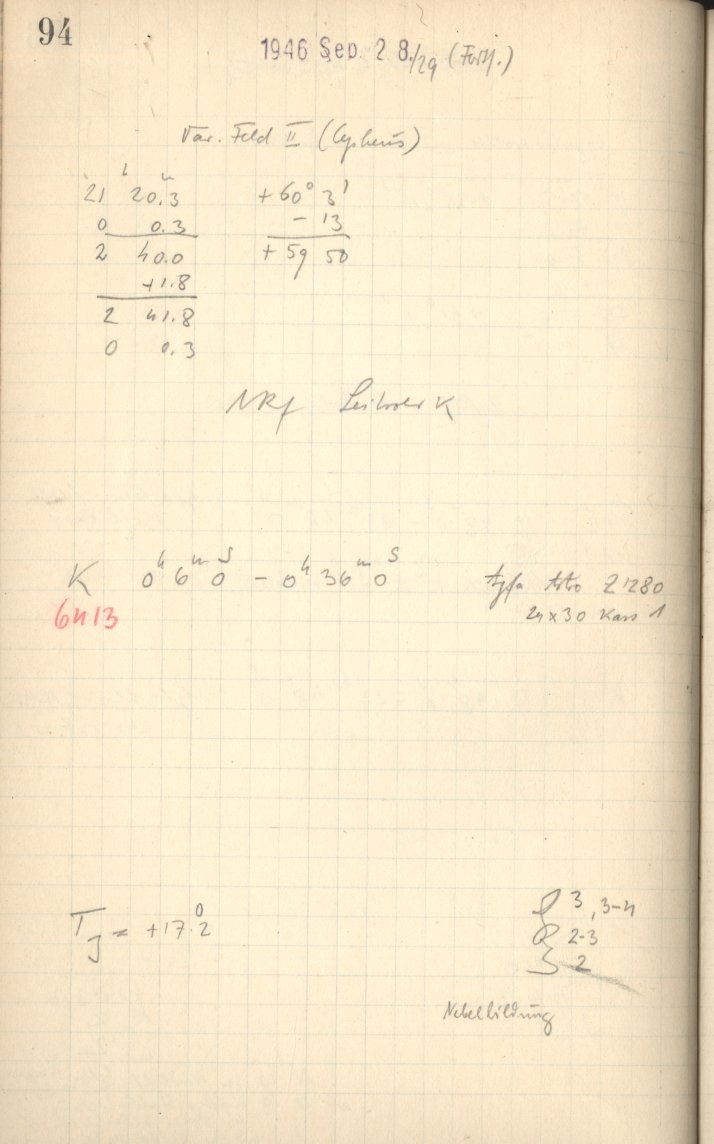 94
1946 Sep. 28./29 (Forts.)
Var. Feld II (Cepheus)
21ʰ 20.3ᵐ +60° 3'
0 0.3 − 13
2 40.0 + 59 50
+1.8
2 41.8
0 0.3
K
K 0ʰ 6ᵐ 0ˢ − 0ʰ 36ᵐ 0ˢ Agfa Astro Z1280
6413 24×30 Kass 1
T_J = +17.°2
3, 3-4
2-3
2
Nebelbildung